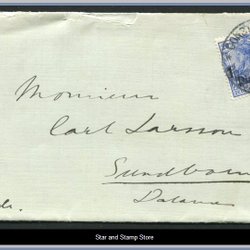 Monsieur
Carl Larsson
Sundborn
Dalarna
Star and Stamp Store